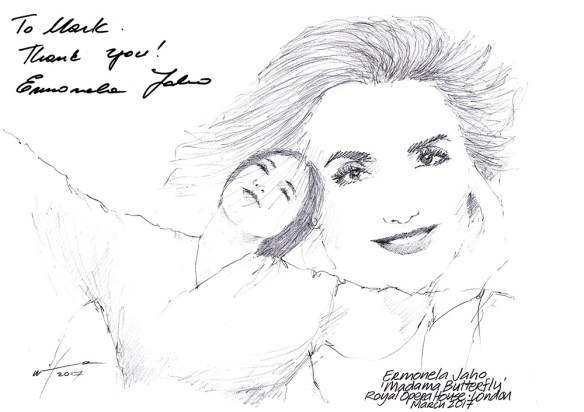 To Mark.
Thank you!
Ermonela Jaho
2017
Ermonela Jaho
'Madama Butterfly'
Royal Opera House: London
March 2017